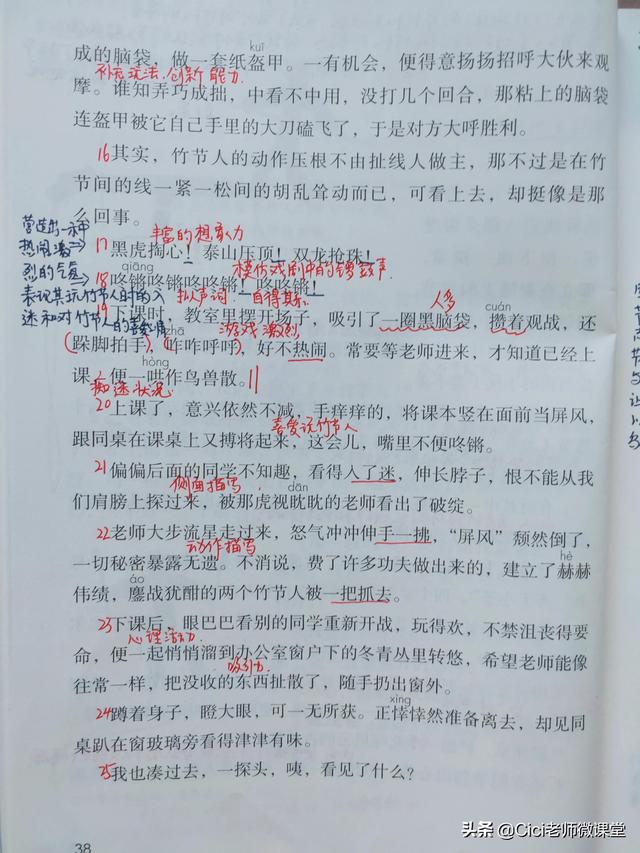 kuī
成的脑袋，做一套纸盔甲。一有机会，便得意扬扬招呼大伙来观
补充玩法.创新能力.
摩。谁知弄巧成拙，中看不中用，没打几个回合，那粘上的脑袋
连盔甲被它自己手里的大刀磕飞了，于是对方大呼胜利。
16其实，竹节人的动作压根不由扯线人做主，那不过是在竹
节间的线一紧一松间的胡乱耸动而已，可看上去，却挺像是那
么回事。
营造出一种
热闹激
烈的气氛
表现其玩竹节人时的入
迷和对竹节人的喜爱
丰富的想象力
17黑虎掏心！泰山压顶！双龙抢珠！
qiāng
模仿戏剧中的锣鼓声
18咚锵咚锵咚咚锵！咚咚锵！
拟声词.自得其乐
人多
cuán
19下课时，教室里摆开场子，吸引了一圈黑脑袋，攒着观战，还
zhā
游戏激烈
跺脚拍手，咋咋呼呼，好不热闹。常要等老师进来，才知道已经上
hòng
课，便一哄作鸟兽散。
痴迷状况
20上课了，意兴依然不减，手痒痒的，将课本竖在面前当屏风，
喜爱玩竹节人
跟同桌在课桌上又搏将起来，这会儿，嘴里不便咚锵。
21偏偏后面的同学不知趣，看得入了迷，伸长脖子，恨不能从我
侧面描写
dān
们肩膀上探过来，被那虎视眈眈的老师看出了破绽。
22老师大步流星走过来，怒气冲冲伸手一拂，“屏风”颓然倒了，
动作描写
hè
一切秘密暴露无遗。不消说，费了许多功夫做出来的，建立了赫赫
áo
伟绩，鏖战犹酣的两个竹节人被一把抓去。
23下课后，眼巴巴看别的同学重新开战，玩得欢，不禁沮丧得要
心理活动.
命，便一起悄悄溜到办公室窗户下的冬青丛里转悠，希望老师能像
吸引力.
往常一样，把没收的东西扯散了，随手扔出窗外。
xìng
24蹲着身子，瞪大眼，可一无所获。正悻悻然准备离去，却见同
桌趴在窗玻璃旁看得津津有味。
25我也凑过去，一探头，咦，看见了什么？
38
头条 @Cici老师微课堂